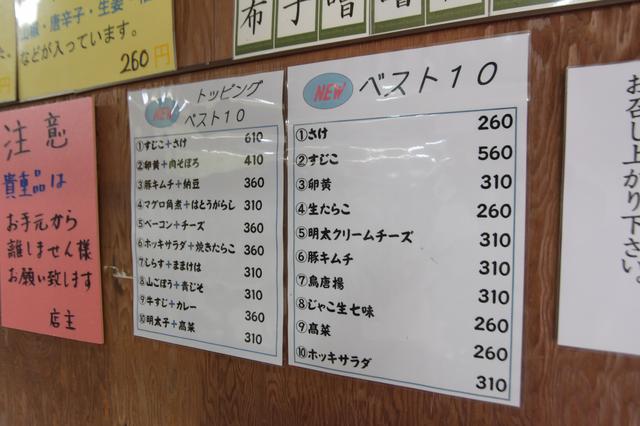 山椒・唐辛子・生姜・
などが入っています。
260円
注意
貴重品は
お手元から
離しません様
お願い致します
店主
トッピング
NEW ベスト10
①すじこ+さけ 610
②卵黄+肉そぼろ 410
③豚キムチ+納豆 360
④マグロ角煮+はとうがらし 310
⑤ベーコン+チーズ 360
⑥ホッキサラダ+焼きたらこ 360
⑦しらす+ままけは 310
⑧山ごぼう+青じそ 310
⑨牛すじ+カレー 360
⑩明太子+高菜 310
NEW ベスト10
①さけ 260
②すじこ 560
③卵黄 310
④生たらこ 260
⑤明太クリームチーズ 310
⑥豚キムチ 310
⑦鳥唐揚 310
⑧じゃこ生七味 310
⑨高菜 260
⑩ホッキサラダ 260
310
お召し上がり下さい。